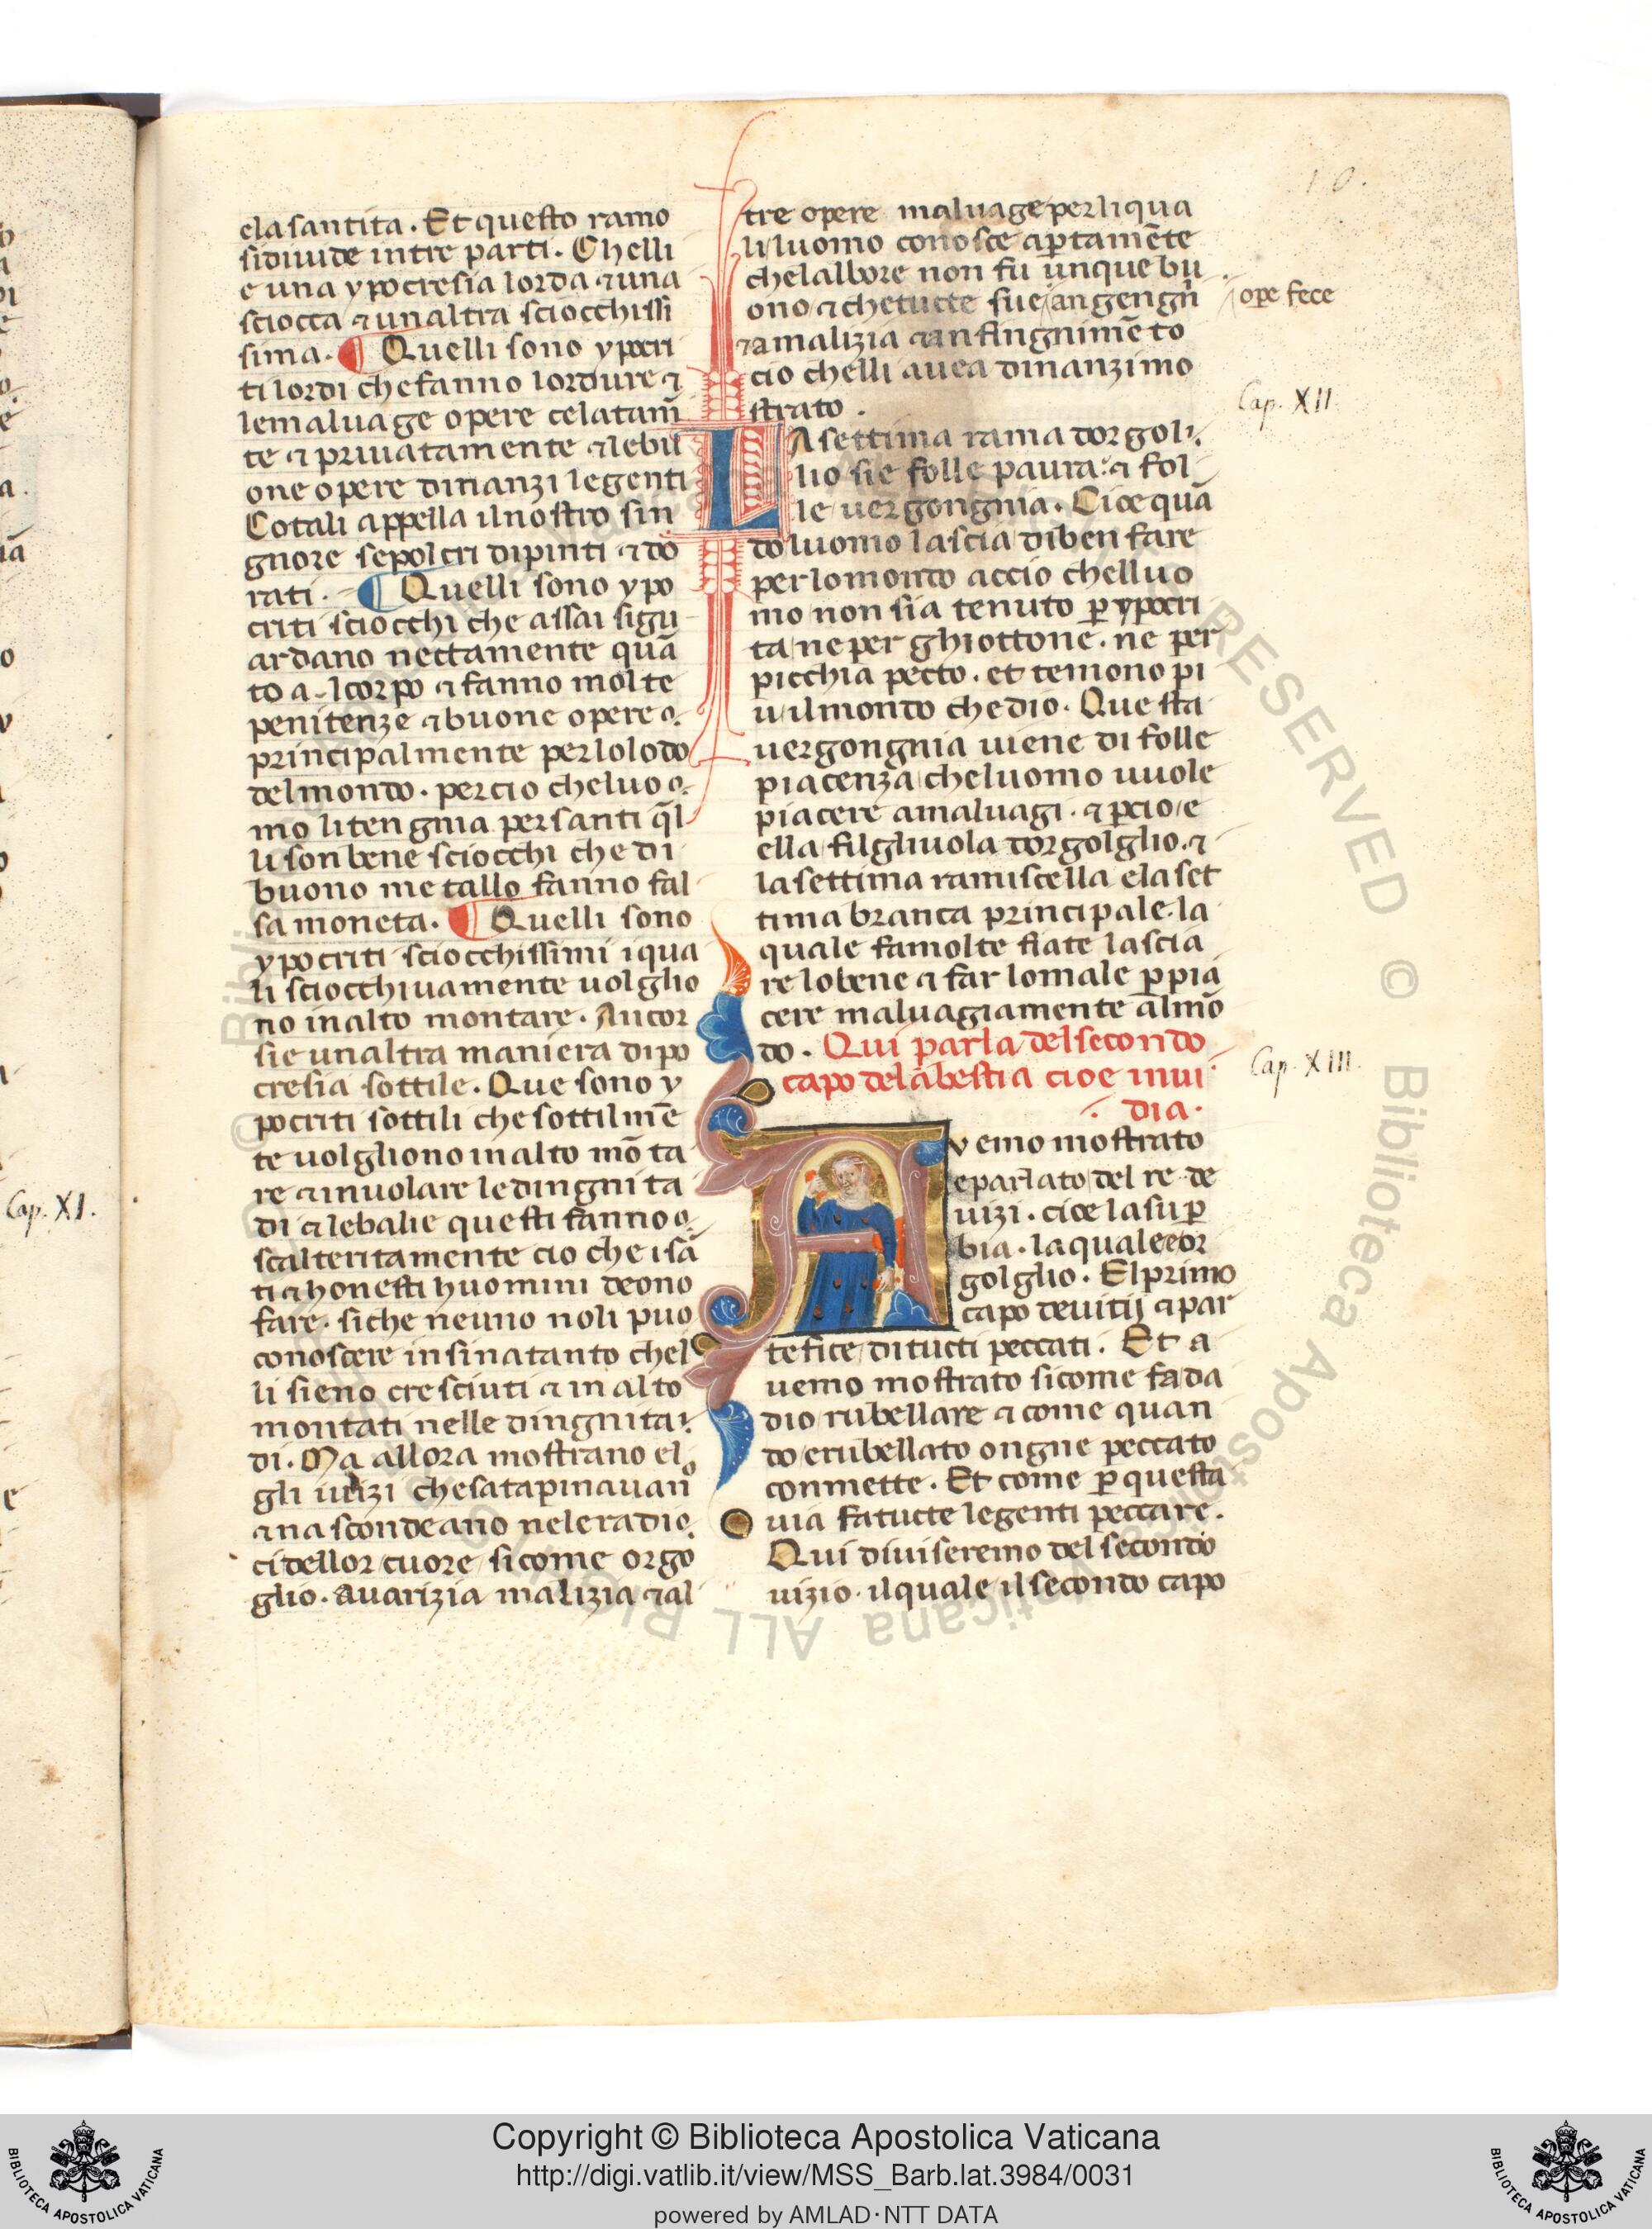 10.
ela santita. Et questo ramo
si diuide in tre parti. Chelli
e una ypocresia lorda ⁊ una
sciocca ⁊ unaltra sciocchissi
sima. ¶ Quelli sono ypocri
ti lordi che fanno lordure ⁊
le maluage opere celatam̄
te ⁊ priuatamente ⁊ le bu
one opere dinanzi le genti
Cotali appella il nostro sin
gnore sepolcri dipinti ⁊ do
rati. ¶ Quelli sono ypo
criti sciocchi che assai si gu
ardano nectamente quā
to al corpo ⁊ fanno molte
penitenze ⁊ buone opere
principalmente per lo lodo
del mondo. percio che luo
mo li tengnia per santi q̄l
li son bene sciocchi che di
buono metallo fanno fal
sa moneta. ¶ Quelli sono
ypocriti sciocchissimi i qua
li sciocchiuamente uolglio
no in alto montare. Ancor
sie unaltra maniera dipo
cresia sottile. Que sono y
pocriti sottili che sottilmē
te uolgliono in alto mōta
re ⁊ inuolare le dingnita
di ⁊ le balie questi fanno
scalteritamente cio che i sā
ti ⁊ honesti huomini deono
fare. siche neuno noli puo
conoscere insina tanto chel
li sieno cresciuti ⁊ in alto
montati nelle dingnita
di. Ma allora mostrano el
gli uizi che satapinauan
⁊ nascondeano nele radie
ci dellor cuore sicome orgo
glio. auarizia malizia ⁊ al
tre opere maluage per li qua
li luomo conosce ap̄tamēte
che lalbore non fu unque bu
ono ⁊ che tucte sue an gengn
ope fece
⁊ a malizia ⁊ an fingnimēto
cio chelli auea dinanzi mo
strato.
Cap. XII.
LA settima rama dorgol
lio sie folle paura: ⁊ fol
le uergongnia. Cioe quā
do luomo lascia di ben fare
per lo mondo accio chelluo
mo non sia tenuto p̄ ypocri
ta ne per ghiottone. ne per
picchia pecto. et temono pi
u il mondo che dio. Questa
uergongnia uiene di folle
piacenza che luomo uuole
piacere a maluagi. ⁊ p̄cio e
ella filgliuola dorgolglio. ⁊
la settima ramiscella e la set
tima branca principale. la
quale fa molte fiate lascia
re lo bene ⁊ far lo male p̄ pia
cere maluagiamente al mō
do. Qui parla del secondo
capo dela bestia cioe inui
dia.
Cap. XIII.
Auemo mostrato
e parlato del re de
uizi. cioe la sup̄
bia. la quale e or
golglio. El primo
capo de uitij ⁊ par
tefice di tucti peccati. Et a
uemo mostrato sicome fa da
dio rubellare ⁊ come quan
do e rubellato ongne peccato
conmette. Et come p̄ questa
uia fa tucte le genti peccare.
Qui diuiseremo del secondo
uizio. il quale il secondo capo
Cap. XI.
Copyright © Biblioteca Apostolica Vaticana
http://digi.vatlib.it/view/MSS_Barb.lat.3984/0031
powered by AMLAD·NTT DATA
BIBLIOTECA APOSTOLICA VATICANA
BIBLIOTECA APOSTOLICA VATICANA